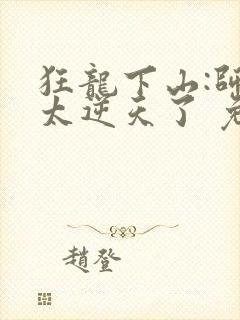 狂龍下山:師
太逆天了
趙登